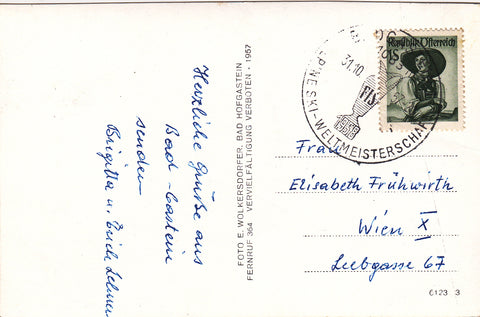 Herzliche Grüße aus
Bad-Gastein
senden
Brigitta u. Erich
FOTO E. WOLKERSDORFER, BAD HOFGASTEIN
FERNRUF 364 VERVIELFÄLTIGUNG VERBOTEN · 1957
31.10.
FIS
1958
SKI-WELTMEISTERSCHAFT
Republik Österreich
Frau
Elisabeth Frühwirth
Wien X
Leebgasse 67
6123 3